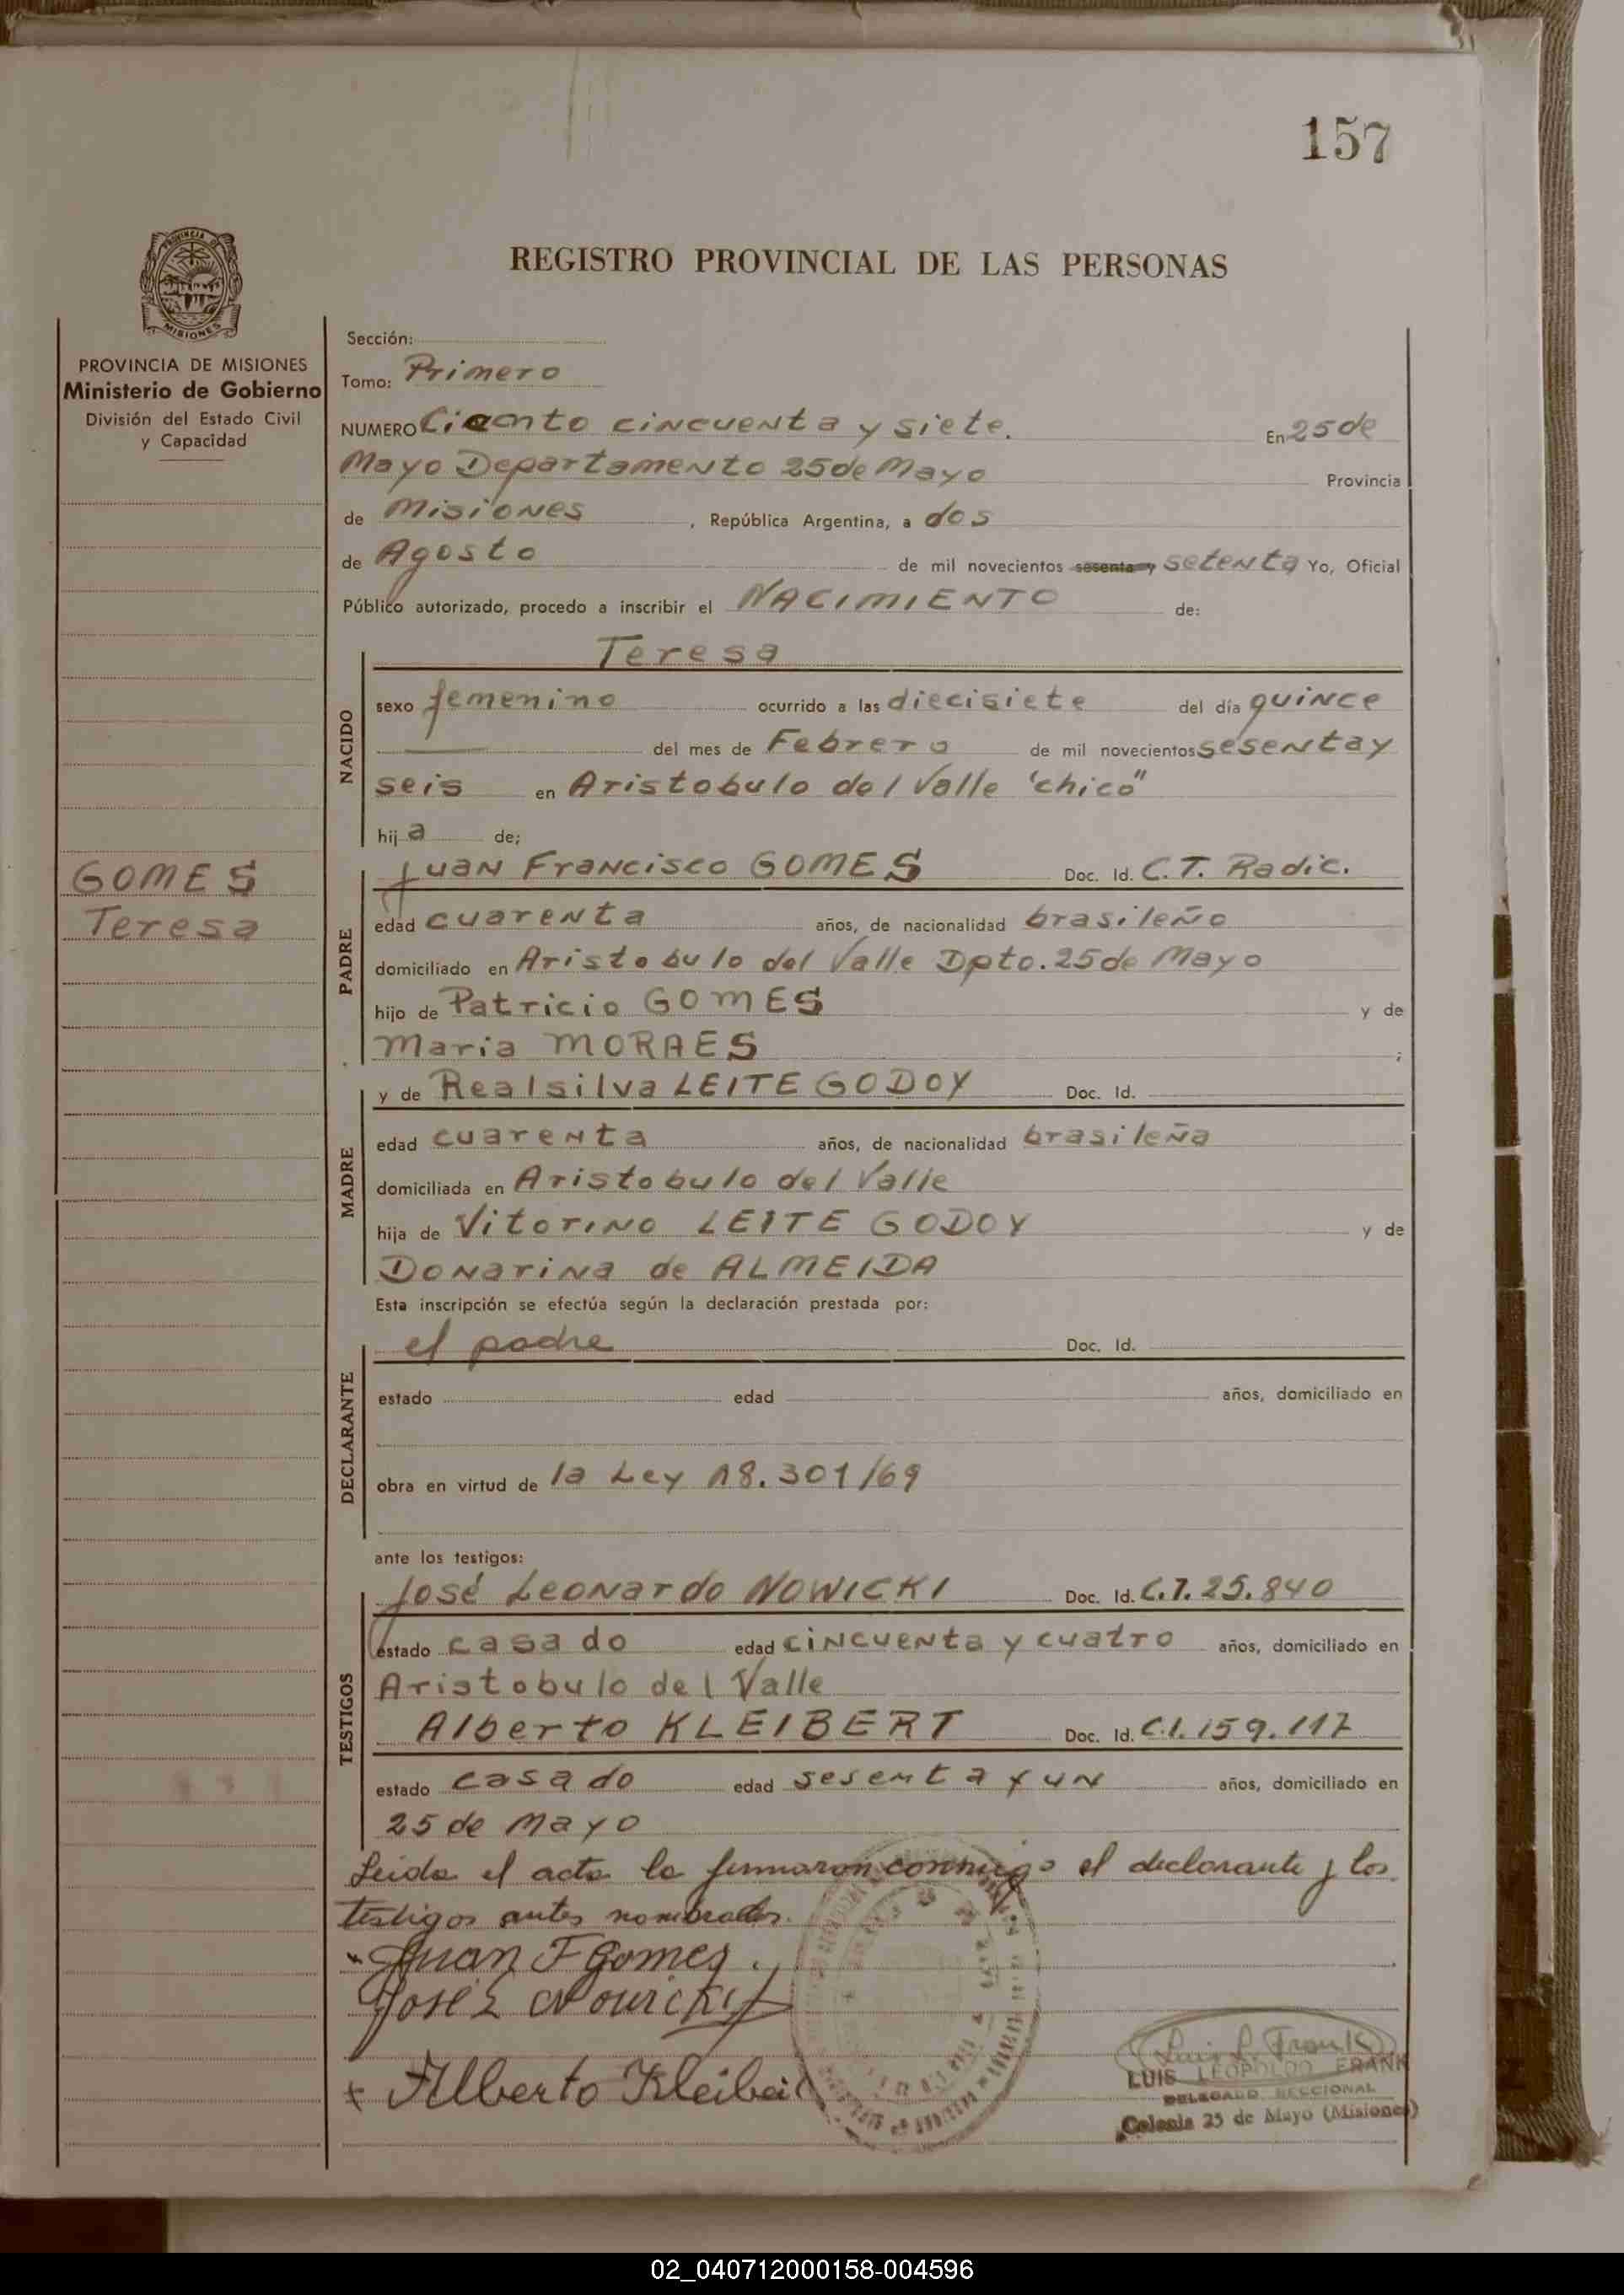 157
REGISTRO PROVINCIAL DE LAS PERSONAS
PROVINCIA DE MISIONES
PROVINCIA DE MISIONES
Ministerio de Gobierno
División del Estado Civil
y Capacidad
GOMES
Teresa
Sección:
Tomo: Primero
NUMERO Ciento cincuenta y siete. En 25 de
Mayo Departamento 25 de Mayo Provincia
de Misiones, República Argentina, a dos
de Agosto de mil novecientos sesenta y setenta Yo, Oficial
Público autorizado, procedo a inscribir el NACIMIENTO de:
NACIDO
Teresa
sexo femenino ocurrido a las diecisiete del día quince
del mes de Febrero de mil novecientos sesenta y
seis en Aristobulo del Valle "chico"
hija de;
PADRE
Juan Francisco GOMES Doc. Id. C.T. Radic.
edad cuarenta años, de nacionalidad brasileño
domiciliado en Aristobulo del Valle Dpto. 25 de Mayo
hijo de Patricio GOMES y de
Maria MORAES ;
MADRE
y de Realsilva LEITE GODOY Doc. Id.
edad cuarenta años, de nacionalidad brasileña
domiciliada en Aristobulo del Valle
hija de Vitorino LEITE GODOY y de
Donarina de ALMEIDA
Esta inscripción se efectúa según la declaración prestada por:
DECLARANTE
el padre Doc. Id.
estado edad años, domiciliado en
obra en virtud de la Ley 18.301/69
ante los testigos:
TESTIGOS
José Leonardo NOWICKI Doc. Id. C.I. 25.840
estado casado edad cincuenta y cuatro años, domiciliado en
Aristobulo del Valle
Alberto KLEIBERT Doc. Id. C.I. 159.117
estado casado edad sesenta y un años, domiciliado en
25 de Mayo
Leida el acta la firmaron conmigo el declarante y los
testigos antes nombrados.
Juan F Gomes.
José L Nowicki
Alberto Kleibert
Luis L. Frank
LUIS LEOPOLDO FRANK
DELEGADO SECCIONAL
Colonia 25 de Mayo (Misiones)
02_040712000158-004596